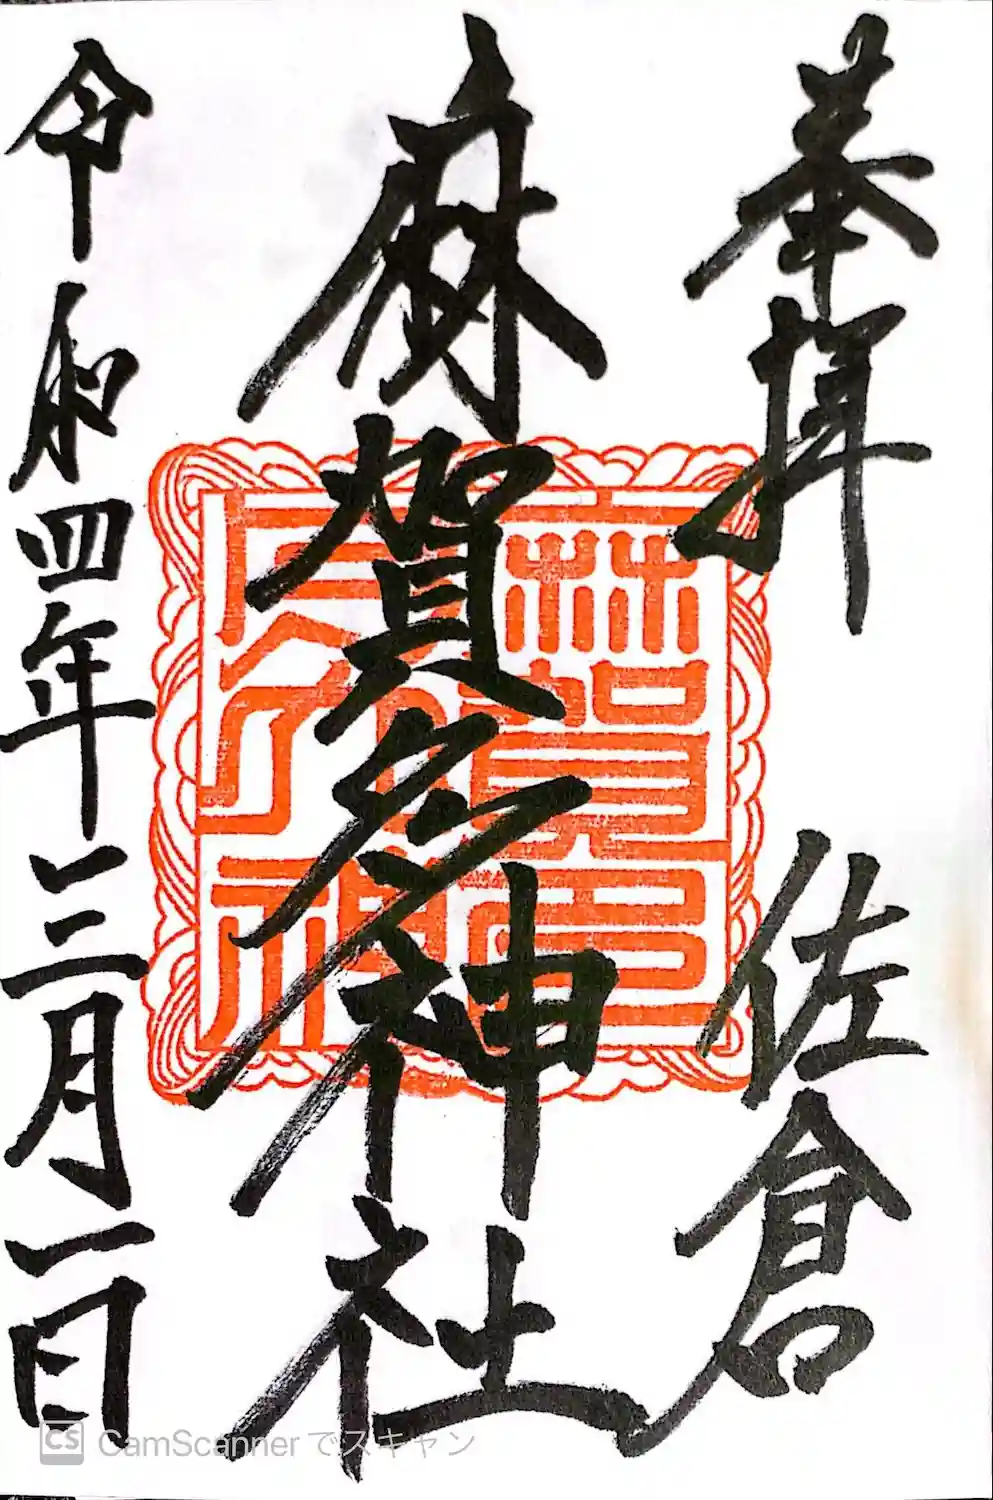 奉拝
佐倉
麻賀多神社
令和四年三月一日
CS CamScannerでスキャン